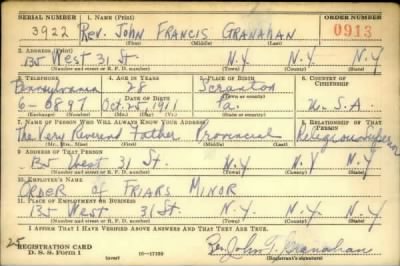 SERIAL NUMBER 1. NAME (Print) ORDER NUMBER
3922 Rev. John Francis Granahan 0913
(First) (Middle) (Last)
2. ADDRESS (Print)
135 West 31 St. N.Y. N.Y. N.Y.
(Number and street or R. F. D. number) (Town) (County) (State)
3. TELEPHONE 4. AGE IN YEARS 5. PLACE OF BIRTH 6. COUNTRY OF CITIZENSHIP
Pennsylvania 28 Scranton
DATE OF BIRTH (Town or county)
6-0897 Oct. 25, 1911 Pa. U.S.A.
(Exchange) (Number) (Mo.) (Day) (Yr.) (State or country)
7. NAME OF PERSON WHO WILL ALWAYS KNOW YOUR ADDRESS 8. RELATIONSHIP OF THAT PERSON
The Very Reverend Father Provincial Religious Superior
(Mr., Mrs., Miss) (First) (Middle) (Last)
9. ADDRESS OF THAT PERSON
135 West 31 St. N.Y. N.Y. N.Y.
(Number and street or R. F. D. number) (Town) (County) (State)
10. EMPLOYER'S NAME
Order of Friars Minor
11. PLACE OF EMPLOYMENT OR BUSINESS
135 West 31 St. N.Y. N.Y. N.Y.
(Number and street or R. F. D. number) (Town) (County) (State)
I AFFIRM THAT I HAVE VERIFIED ABOVE ANSWERS AND THAT THEY ARE TRUE.
25
REGISTRATION CARD
D. S. S. Form 1 (over) Rev. John F. Granahan
(Registrant's signature)